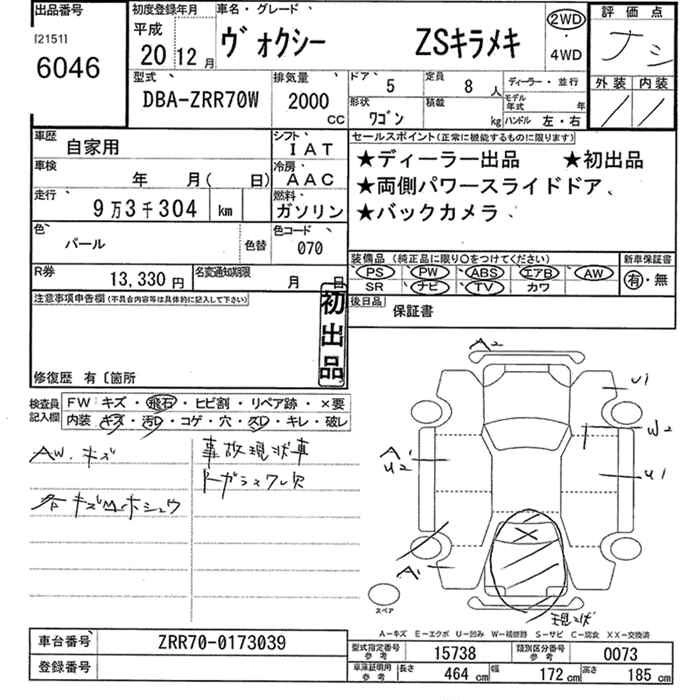 出品番号
[2151]
6046
初度登録年月
平成
20 12 月
車名・グレード
ヴォクシー ZSキラメキ
2WD
・
4WD
評価点
ナシ
外装 内装
型式
DBA-ZRR70W
排気量
2000
CC
ドア
5
定員
8 人
ディーラー・並行
形状
ワゴン
積載
kg
モデル年式
年
ハンドル 左・右
車歴
自家用
シフト
IAT
車検
年 月( 日)
冷房
AAC
走行
9万3千304 km
燃料
ガソリン
色
パール
色替
色コード
070
R券
13,330 円
名変通知期限
月 日
セールスポイント(正常に機能するものに限ります)
★ディーラー出品 ★初出品
★両側パワースライドドア、
★バックカメラ、
装備品 (純正品に限り○をつけてください)
新車保証書
PS PW ABS エアB AW
SR ナビ TV カワ
有・無
後日品
保証書
注意事項申告欄(不具合内容等は具体的に記入して下さい)
初出品
修復歴 有〔箇所
検査員
記入欄
FW キズ・飛石・ヒビ割・リペア跡・×要
内装 キズ・汚れ・コゲ・穴・スレ・キレ・破レ
AW. キズ
事故現状車
各キズMホシュウ
A2
U1
W2
A1
U2
U1
A1
現状
スペア
A−キズ E−エクボ U−凹み W−補修跡 S−サビ C−腐食 XX−交換済
車台番号
ZRR70-0173039
登録番号
型式指定番号
参考
15738
類別区分番号
参考
0073
車庫証明用
参考
長さ
464 cm
幅
172 cm
高さ
185 cm